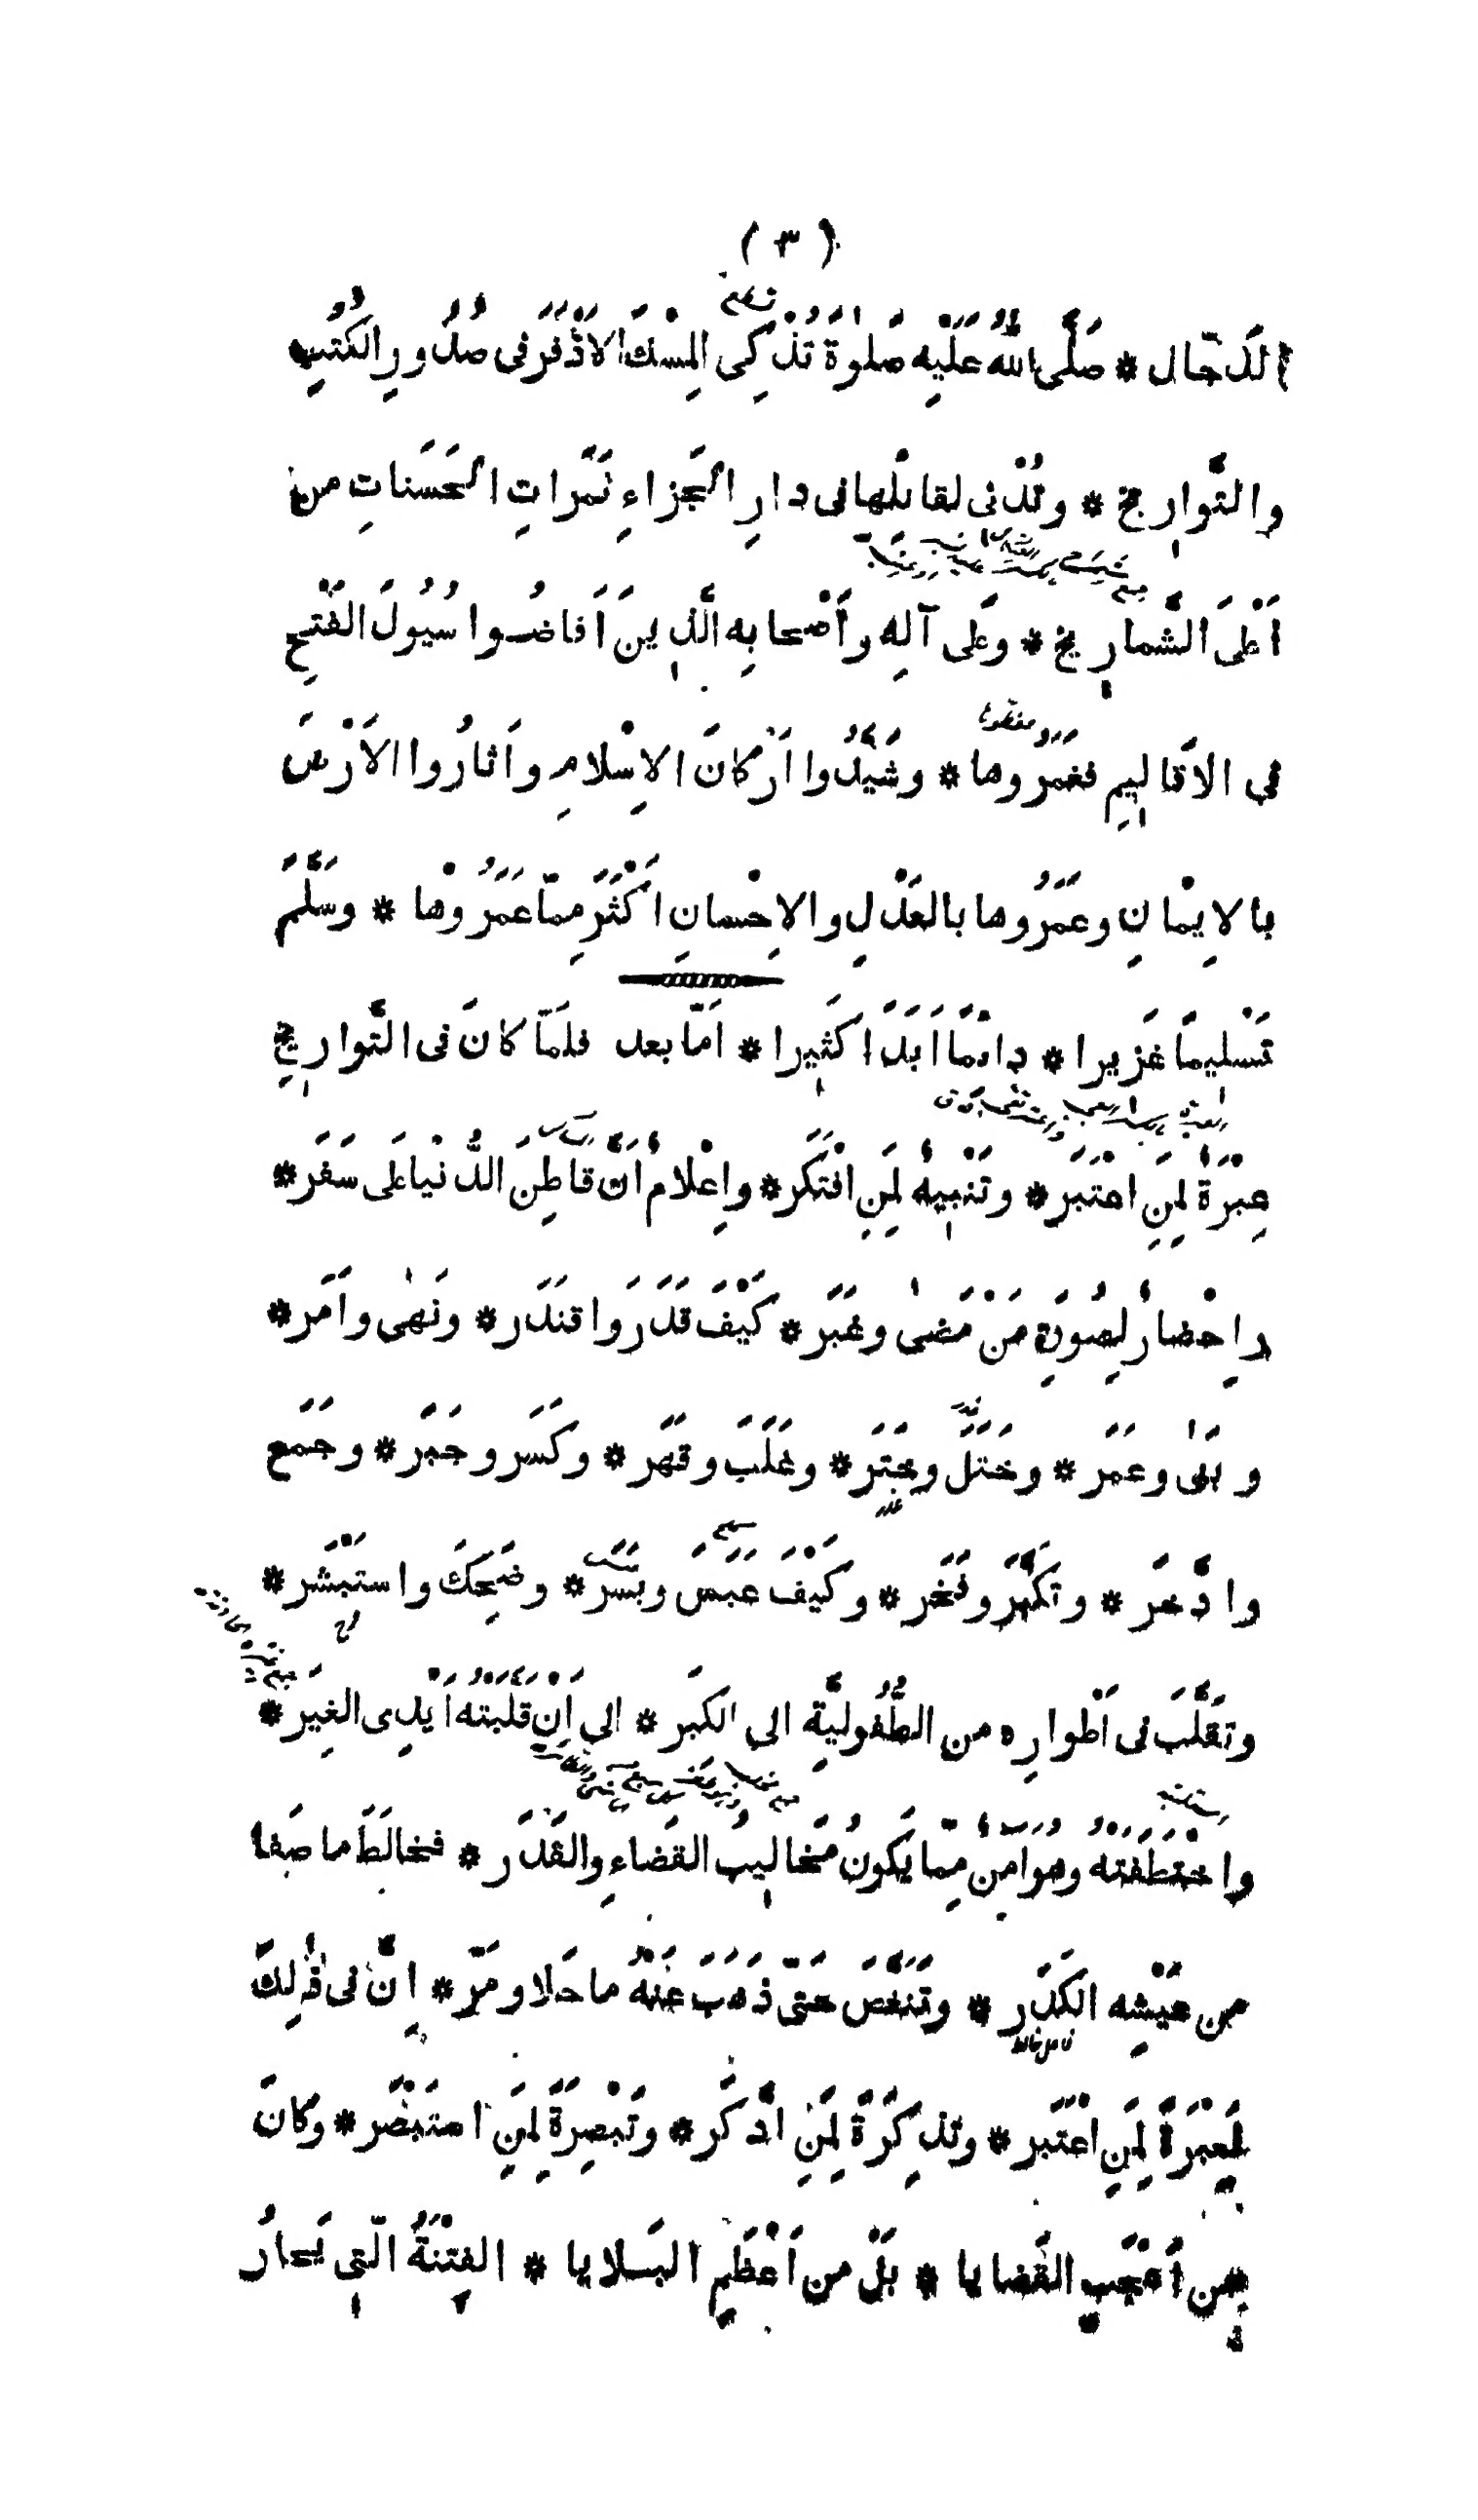 (٣)
الدَجّال * صَلَّى اللهُ عَلَيْهِ صَلٰوةً تُذْكِى المِسْكَ الاَذْفَرَ فى صُدُورِ الكُتُبِ
والتَّوارِيخ * وتُدْنى لقائلها فى دارِ الجَزاءِ ثَمَراتِ الحَسَناتِ من
اَعْلىَ الشَّمارِيخ * وعَلى آلِهِ وأَصْحابِهِ الَّذِينَ اَفاضُوا سُيُولَ الفَتْحِ
فى الاَقالِيمِ فغَمَرُوها * وشَيَّدُوا اَرْكانَ الاِسْلامِ واَثارُوا الاَرْضَ
بالاِيْمانِ وعَمَرُوها بالعَدْلِ والاِحْسانِ اَكْثَرَ مِمّا عَمَرُوْها * وسَلَّمَ
تَسْلِيمًا غَزِيرا * دائمًا اَبَدًا كَثِيرا * اَمّا بعد فلَمّا كانَ فى التَّوارِيخِ
عِبْرَةٌ لِمَنِ اعْتَبَر * وتَنْبِيهٌ لِمَنِ افْتَكَر * واِعْلامٌ أَنَّ قاطِنَ الدُّنْيا عَلى سَفَر *
واِحْضارٌ لِصُورَةِ مَنْ مَضىٰ وغَبَر * كَيْفَ قَدَرَ واقتَدَر * ونَهٰى واَمَر *
وبَنىٰ وعَمَر * وخَتَلَ وخَتَر * وغَلَبَ وقَهَر * وكَسَر وجَبَر * وجَمَع
وادَّخَر * وتكَبَّرَ وفَخَر * وكَيْفَ عَبَسَ وبَسَر * وضَحِكَ واستَبْشَر *
وتَقَلَّبَ فى اَطْوارِه من الطُّفُولِيَّةِ الى الكِبَر * الى اَنْ قَلَبَتْهُ اَيْدِى الغِيَر *
واخْتَطَفَتْهُ وهُو آمَنُ مِمّا يَكونُ مَخالِيبُ القَضاءِ والقَدَر * فخالَطَ ما صَفا
من عَيْشِه الكَدَر * وتَنَغَّصَ حَتّى ذَهَبَ عَنْهُ ما حَلا ومَرّ * اِنَّ فى ذٰلِكَ
لَعِبْرَةً لِمَنِ اعْتَبَر * وتَذْكِرَةً لِمَنِ ادَّكَر * وتَبْصِرَةً لِمَنِ استَبْصَر * وكانَ
مِن أَعْجَبِ القَضايا * بَلْ من اَعْظَمِ البَلايا * الفِتْنَةُ الّتِى يَحارُ